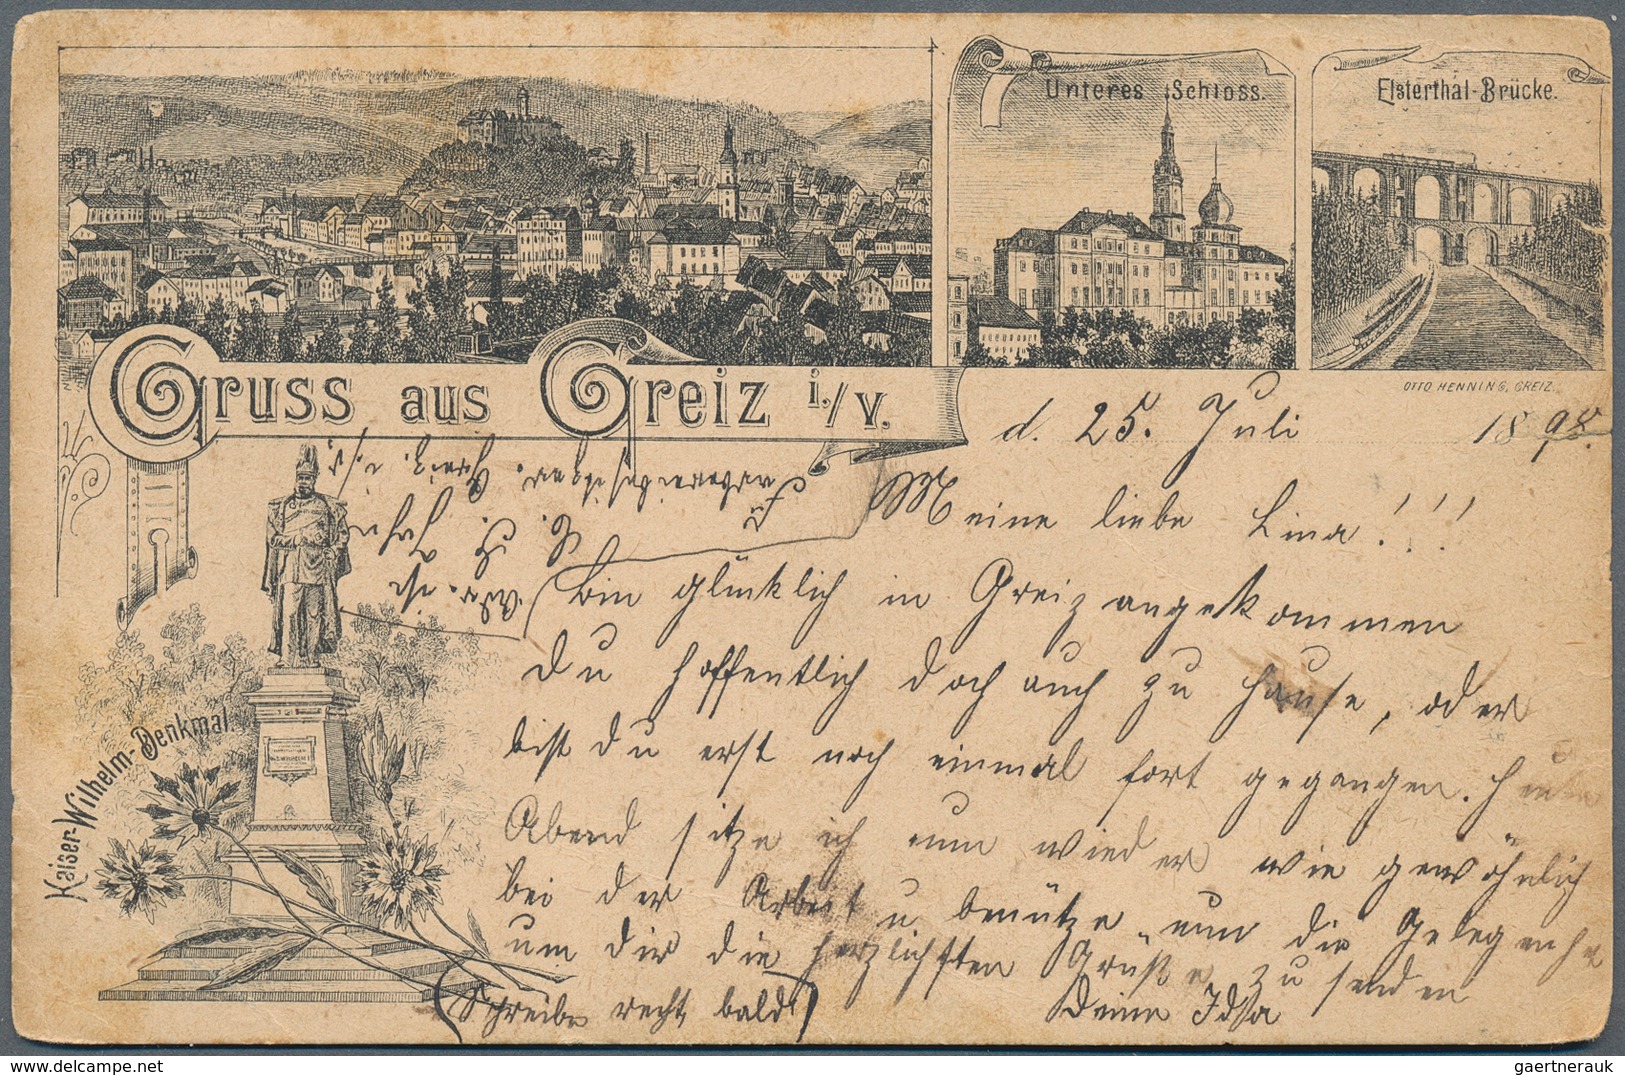 Unteres Schloss.
Elsterthal-Brücke.
OTTO HENNING, GREIZ.
Gruss aus Greiz i./V.
d. 25. Juli 1898.
Meine liebe Lina!!!
Bin glücklich in Greiz angekommen
du hoffentlich doch auch zu Hause, oder
bist du erst noch einmal fort gegangen. Heute
Abend sitze ich nun wieder wie gewöhnlich
bei der Arbeit u benütze nun die Gelegenhe
um dir die herzlichsten Grüße zu senden
(Schreibe recht bald)
Deine Ida
Kaiser-Wilhelm-Denkmal.
Greiz i./V.
gaertnerauk
Hosted on delcampe.net